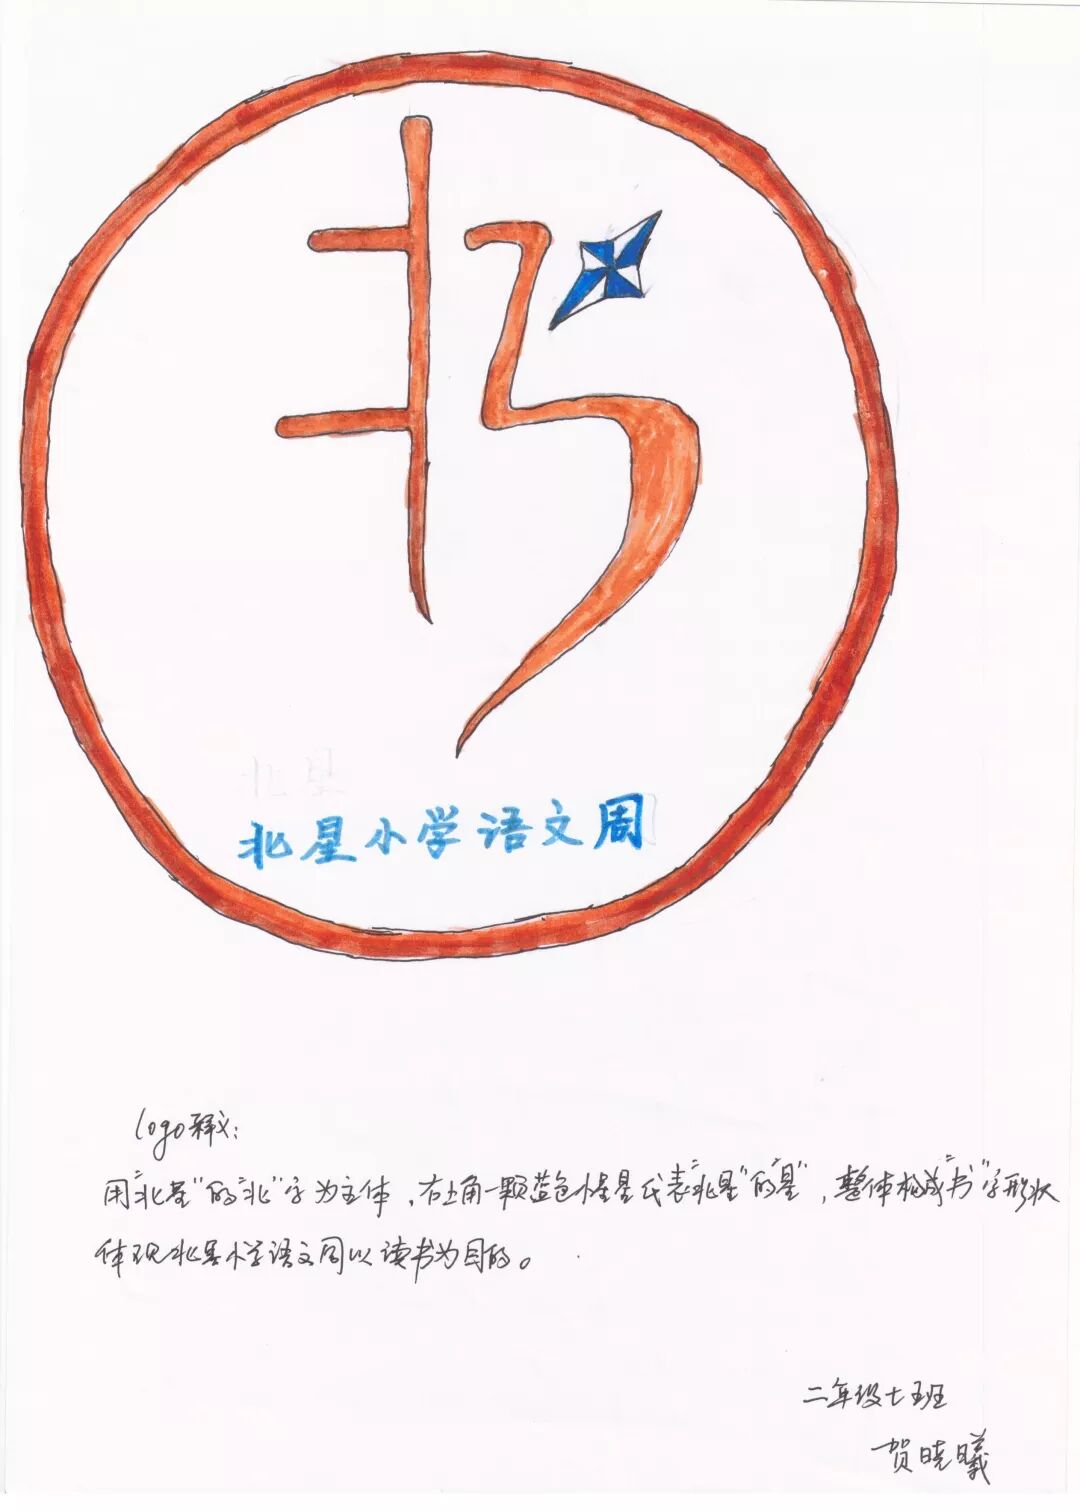 北星
北星小学语文周
logo释义:
用“北星”的“北”字为主体,右上角一颗蓝色小星星代表“北星”的“星”,整体构成“书”字形状
体现北星小学语文周以读书为目的。
二年级七班
贺晓曦